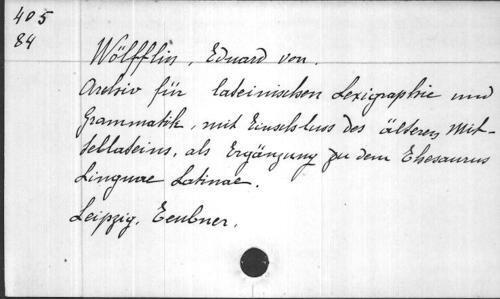 405
84
Wölfflin, Eduard von.
Archiv für lateinischen Lexigraphie und
Grammatik, mit Einschluss des älteren Mit-
tellateins, als Ergänzung zu dem Thesaurus
Linguae Latinae.
Leipzig. Teubner.